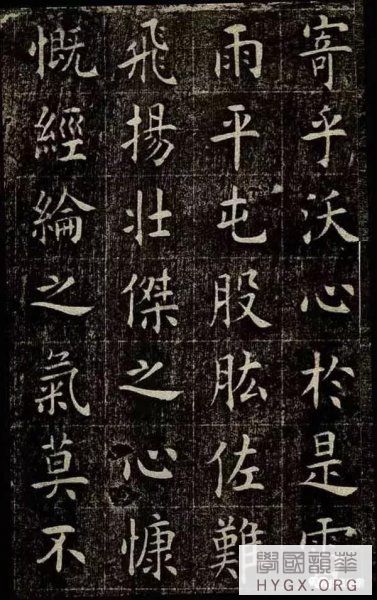 寄乎沃心於是雲
雨平屯股肱佐難
飛揚壯傑之心慷
慨經綸之氣莫不
華韻國學
HYGX.ORG